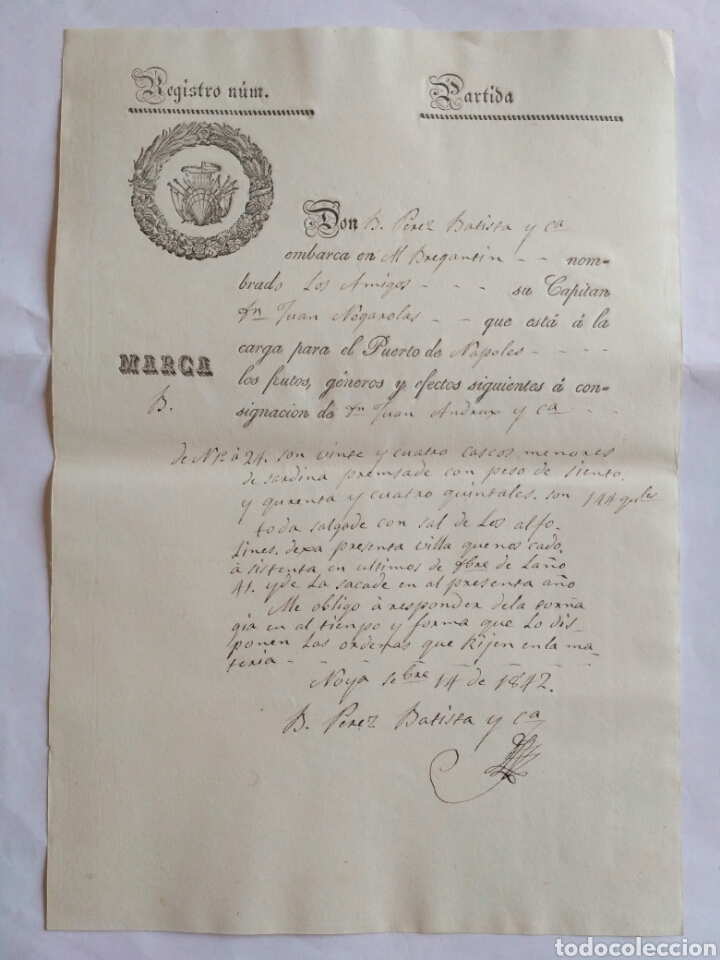 Registro núm.
Partida
Don B. Perez Batista y ca
embarca en el Bregantin - - nom-
brado Los Amigos - - - su Capitan
Dn Juan Nogarolas - - que está á la
carga para el Puerto de Napoles - - - -
los frutos, géneros y efectos siguientes á con-
signacion de Dn Juan Andrux y ca - -
MARCA
B.
de N 1 à 24. son vinte y cuatro cascos menores
de sardina premsade con peso de siento,
y qurenta y cuatro quintales. son 144 qules
toda salgade con sal de Los alfo-
Lines. dexa presenta villa que nos cado.
à sistenta en ultimos de de Laño
41. y de La sacade en al presenta año
Me obligo à responder dela torña
gia en al tiempo y forma que Lo dis-
ponen Las ordenas que Rijen en la ma-
teria - - - - - - -
Noya sebre 14 de 1842.
B. Perez Batista y ca
todocoleccion